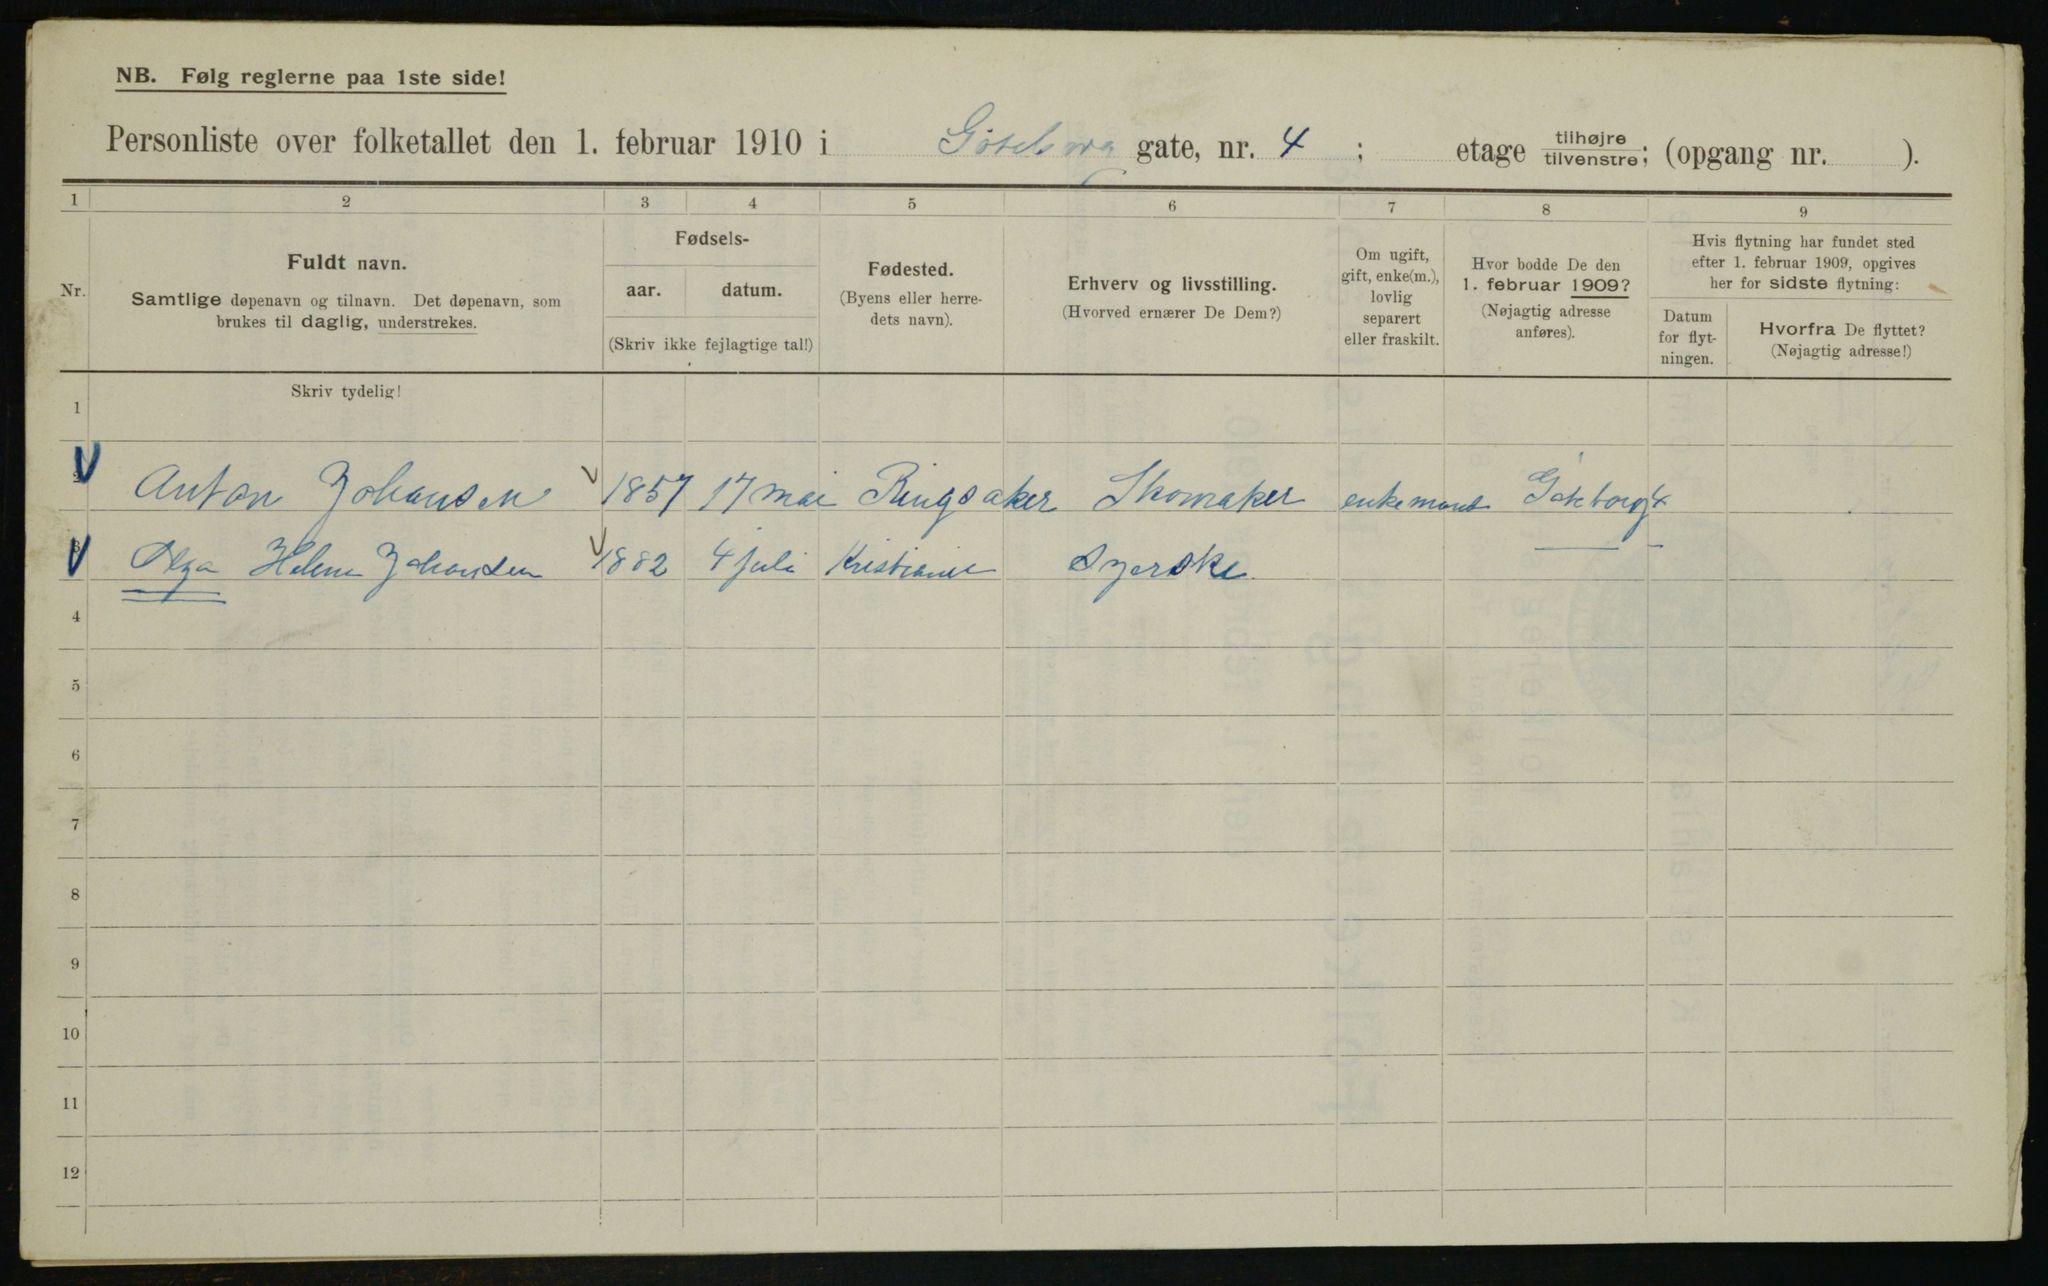 NB. Følg reglerne paa 1ste side!
Personliste over folketallet den 1. februar 1910 i Göteborg gate, nr. 4 ; etage tilhøjre/tilvenstre; (opgang nr. ).
1 2 3 4 5 6 7 8 9
Nr.
Fuldt navn.
Samtlige døpenavn og tilnavn. Det døpenavn, som
brukes til daglig, understrekes.
Fødsels-
aar. datum.
(Skriv ikke fejlagtige tal!)
Fødested.
(Byens eller herre-
dets navn).
Erhverv og livsstilling.
(Hvorved ernærer De Dem?)
Om ugift,
gift, enke(m.),
lovlig
separert
eller fraskilt.
Hvor bodde De den
1. februar 1909?
(Nøjagtig adresse
anføres).
Hvis flytning har fundet sted
efter 1. februar 1909, opgives
her for sidste flytning:
Datum
for flyt-
ningen.
Hvorfra De flyttet?
(Nøjagtig adresse!)
Skriv tydelig!
1
2 Anton Johansen 1857 17 mai Ringsaker Skomaker enkemand Göteborg 4
3 Olga Helene Johansen 1882 4 juli Kristiania Syerske
4
5
6
7
8
9
10
11
12